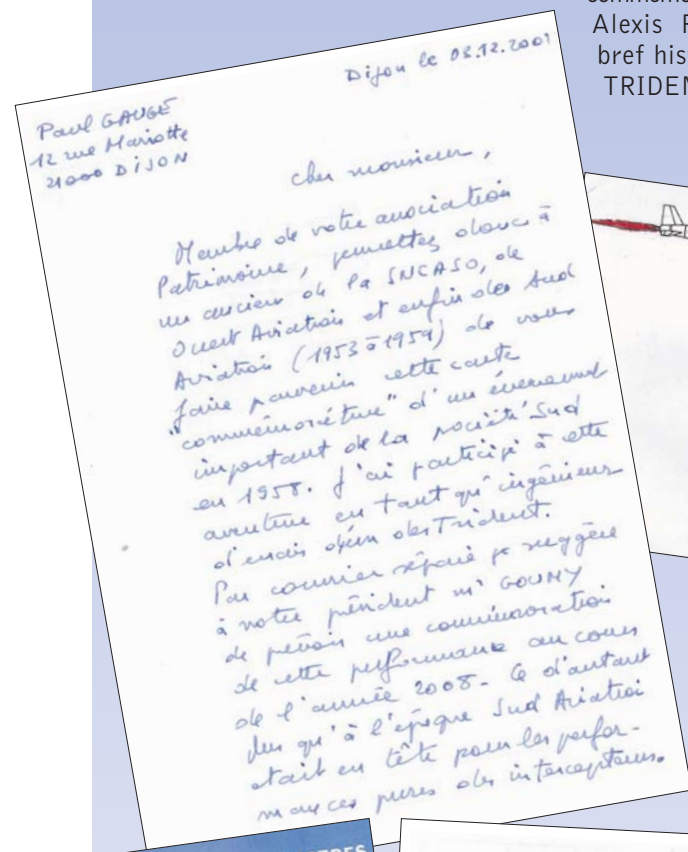 Alexis
bref his
TRIDEN
Dijon le 03.12.2001
Paul GAUGÉ
12 rue Mariotte
21000 DIJON
cher monsieur,
Membre de votre association
Patrimoine, permettez donc à
un ancien de la SNCASO, de
Ouest Aviation et enfin des Sud
Aviation (1953 à 1959) de vous
faire parvenir cette carte
"commémorative" d'un évenement
important de la société Sud
en 1958. J'ai participé à cette
aventure en tant qu'ingénieur
d'essais d'un des Trident.
Par courrier séparé je suggère
à notre président mr GOUMY
de prévoir une commémoration
de cette performance au cours
de l'année 2008 - Ce d'autant
plus qu'à l'époque Sud Aviation
était en tête pour les perfor-
mances pures des intercepteurs.